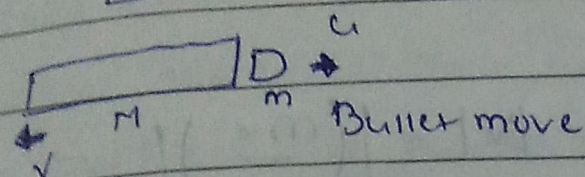 u
M
m
Bullet move
V